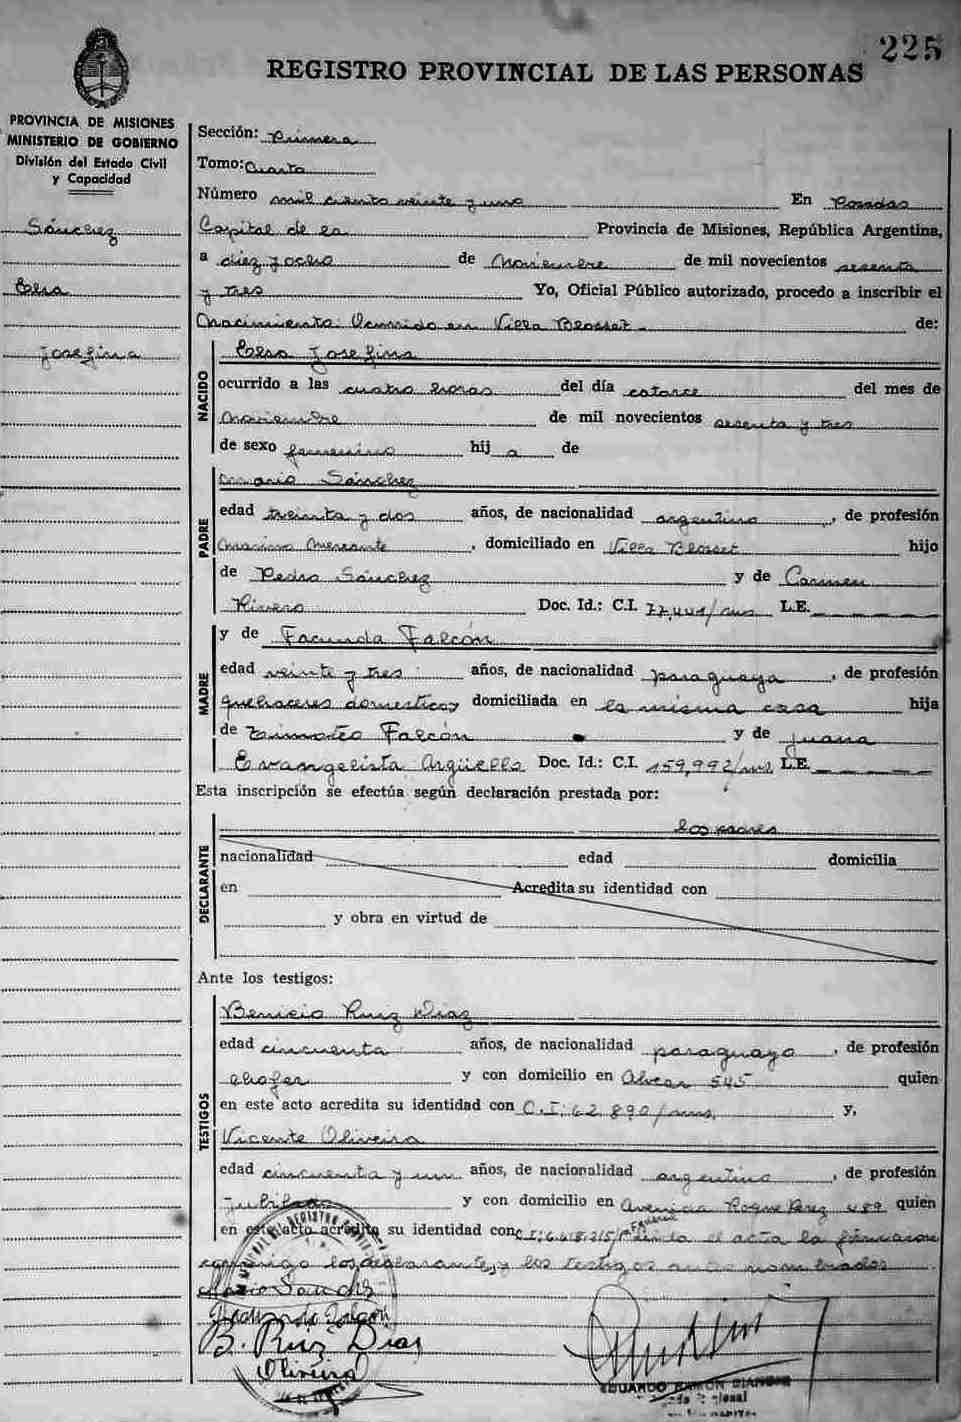 225
REGISTRO PROVINCIAL DE LAS PERSONAS
PROVINCIA DE MISIONES
MINISTERIO DE GOBIERNO
División del Estado Civil
y Capacidad
Sánchez
Elsa
Josefina
Sección: Primera
Tomo: Cuarto
Número mil ciento veinte y uno En Posadas
Capital de la Provincia de Misiones, República Argentina,
a diez y ocho de Noviembre de mil novecientos sesenta
y tres Yo, Oficial Público autorizado, procedo a inscribir el
Nacimiento: Ocurrido en Villa Blosset de:
NACIDO
Elsa Josefina
ocurrido a las cuatro horas del día catorce del mes de
Noviembre de mil novecientos sesenta y tres
de sexo femenino hij a de
PADRE
Mario Sánchez
edad treinta y dos años, de nacionalidad argentino, de profesión
Marino Mercante, domiciliado en Villa Blosset hijo
de Pedro Sánchez y de Carmen
Rivero Doc. Id.: C.I. L.E.
MADRE
y de Facunda Falcón
edad veinte y tres años, de nacionalidad paraguaya, de profesión
quehaceres domesticos domiciliada en la misma casa hija
de Timoteo Falcón y de Juana
Evangelista Argüello Doc. Id.: C.I. 159,992/ms L.E.
Esta inscripción se efectúa según declaración prestada por:
DECLARANTE
los padres
nacionalidad edad domicilia
en Acredita su identidad con
y obra en virtud de
Ante los testigos:
TESTIGOS
Benicio Ruiz Diaz
edad cincuenta años, de nacionalidad paraguayo, de profesión
chofer y con domicilio en Alvear 545 quien
en este acto acredita su identidad con C.I. 62.890/ms. y,
Vicente Oliveira
edad cincuenta y un años, de nacionalidad argentino, de profesión
Jubilado y con domicilio en Avenida Roque Perez 489 quien
en este acto acredita su identidad con el acta la firmaron
conmigo los declarantes y los testigos antes nombrados
Mario Sanchez
B. Ruiz Dias
Oliveira
EDUARDO RAMON